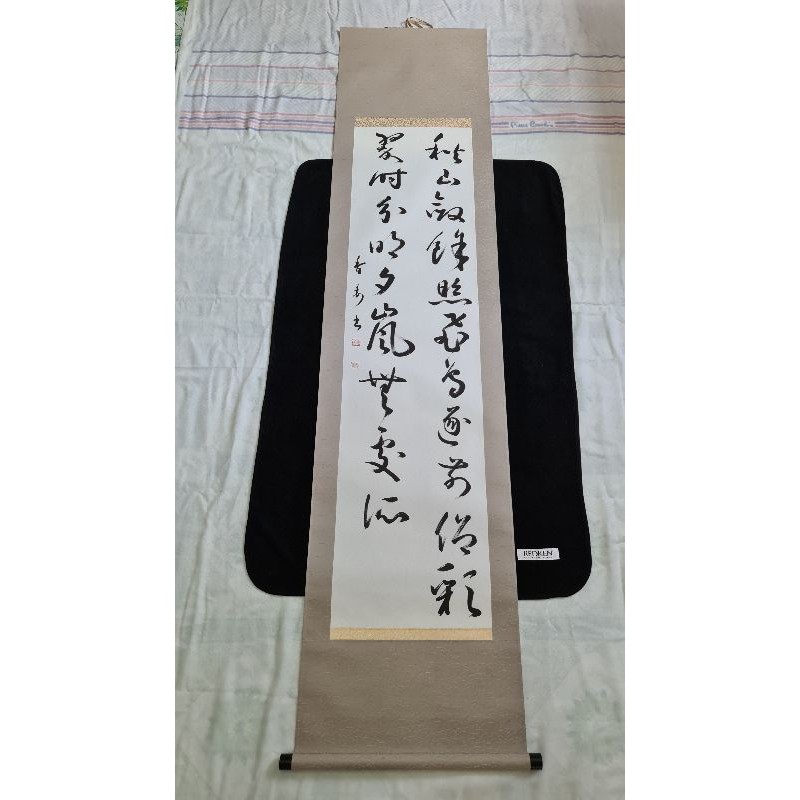 Pierre Cardin
秋山斂餘照飛鳥逐前侶彩
翠時分明夕嵐無處所
書
REDKEN